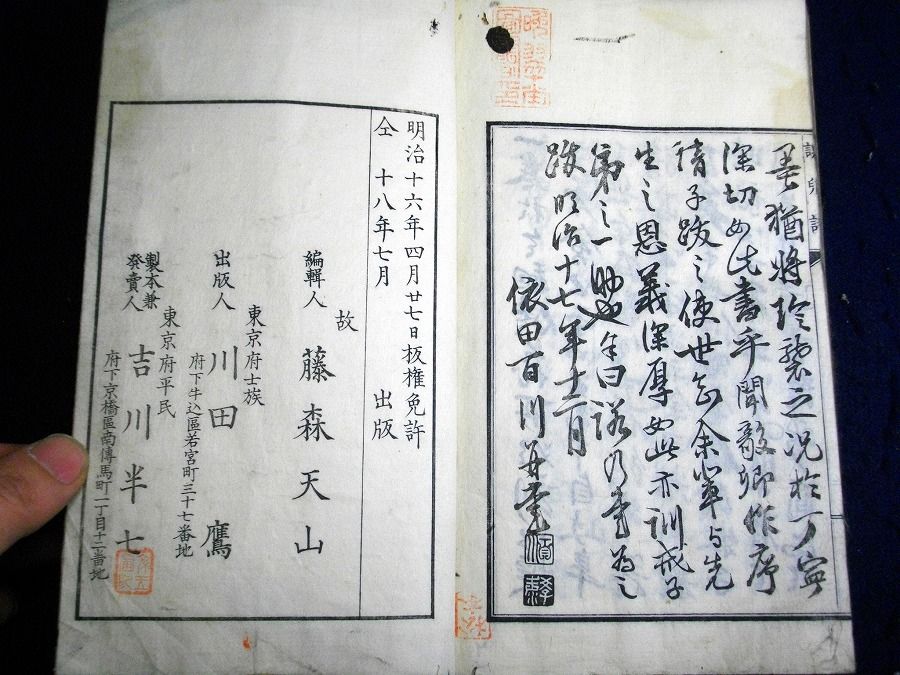 墨猶将珍襲之况於丁寧
深切如此書乎聞毅卿作序
請子跋之使世知余輩与先
生之恩義深厚如此亦訓戒子
弟之一助也余曰諾乃書為之
跋明治十七年十二月
依田百川
明治十六年四月廿七日板権免許
仝 十八年七月 出版
故
編輯人 藤森天山
東京府士族
出版人 川田 鷹
府下牛込區若宮町三十七番地
東京府平民
製本兼
発賣人 吉川半七
府下京橋區南傳馬町一丁目十二番地